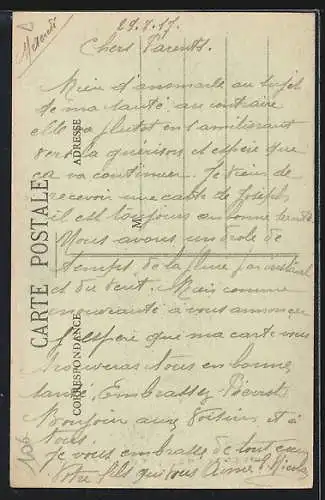 29.7.17.
Chers Parents.
Rien d'anormale au sujet
de ma santé au contraire
elle va plutot en s'amilisrant
vers la guérison et espère que
ça va continuer. Je viens de
recevoir une carte de Joseph
il est toujours en bonne santé
Nous avons un drole de
temps de la pluie par instant
et du vent. Mais comme
nouveauté à vous annoncer
J'espère que ma carte vous
trouveras tous en bonne
santé. Embrassez
Bonjour aux voisins et à
tous.
Je vous embrasse de tout cœur
Votre fils qui vous aime
CARTE POSTALE
CORRESPONDANCE
ADRESSE
M